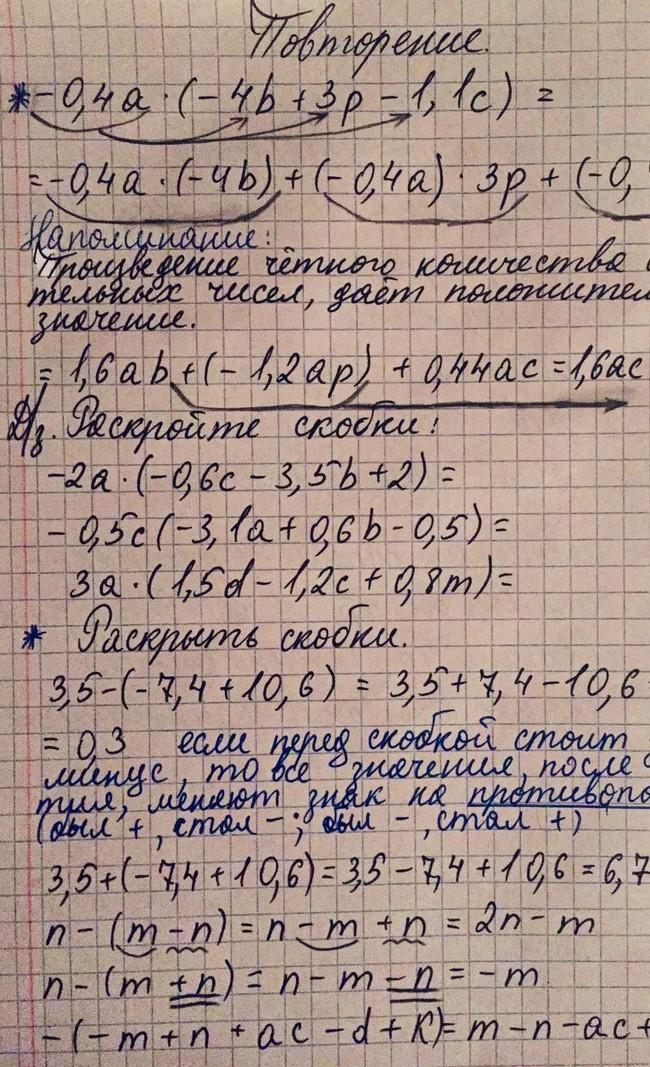 Повторение.
* -0,4a · (-4b + 3p - 1,1c) =
= -0,4a · (-4b) + (-0,4a) · 3p + (-0,
Напоминание:
Произведение чётного количества
тельных чисел, даёт положител
значение.
= 1,6ab + (-1,2ap) + 0,44ac = 1,6ac
Д/з. Раскройте скобки:
-2a · (-0,6c - 3,5b + 2) =
-0,5c (-3,1a + 0,6b - 0,5) =
3a · (1,5d - 1,2c + 0,8m) =
* Раскрыть скобки.
3,5 - (-7,4 + 10,6) = 3,5 + 7,4 - 10,6
= 0,3 если перед скобкой стоит
минус, то все значения, после
меняют знак на противопо
(был +, стал - ; был -, стал +)
3,5 + (-7,4 + 10,6) = 3,5 - 7,4 + 10,6 = 6,7
n - (m - n) = n - m + n = 2n - m
n - (m + n) = n - m - n = -m
-(-m + n + ac - d + k) = m - n - ac +